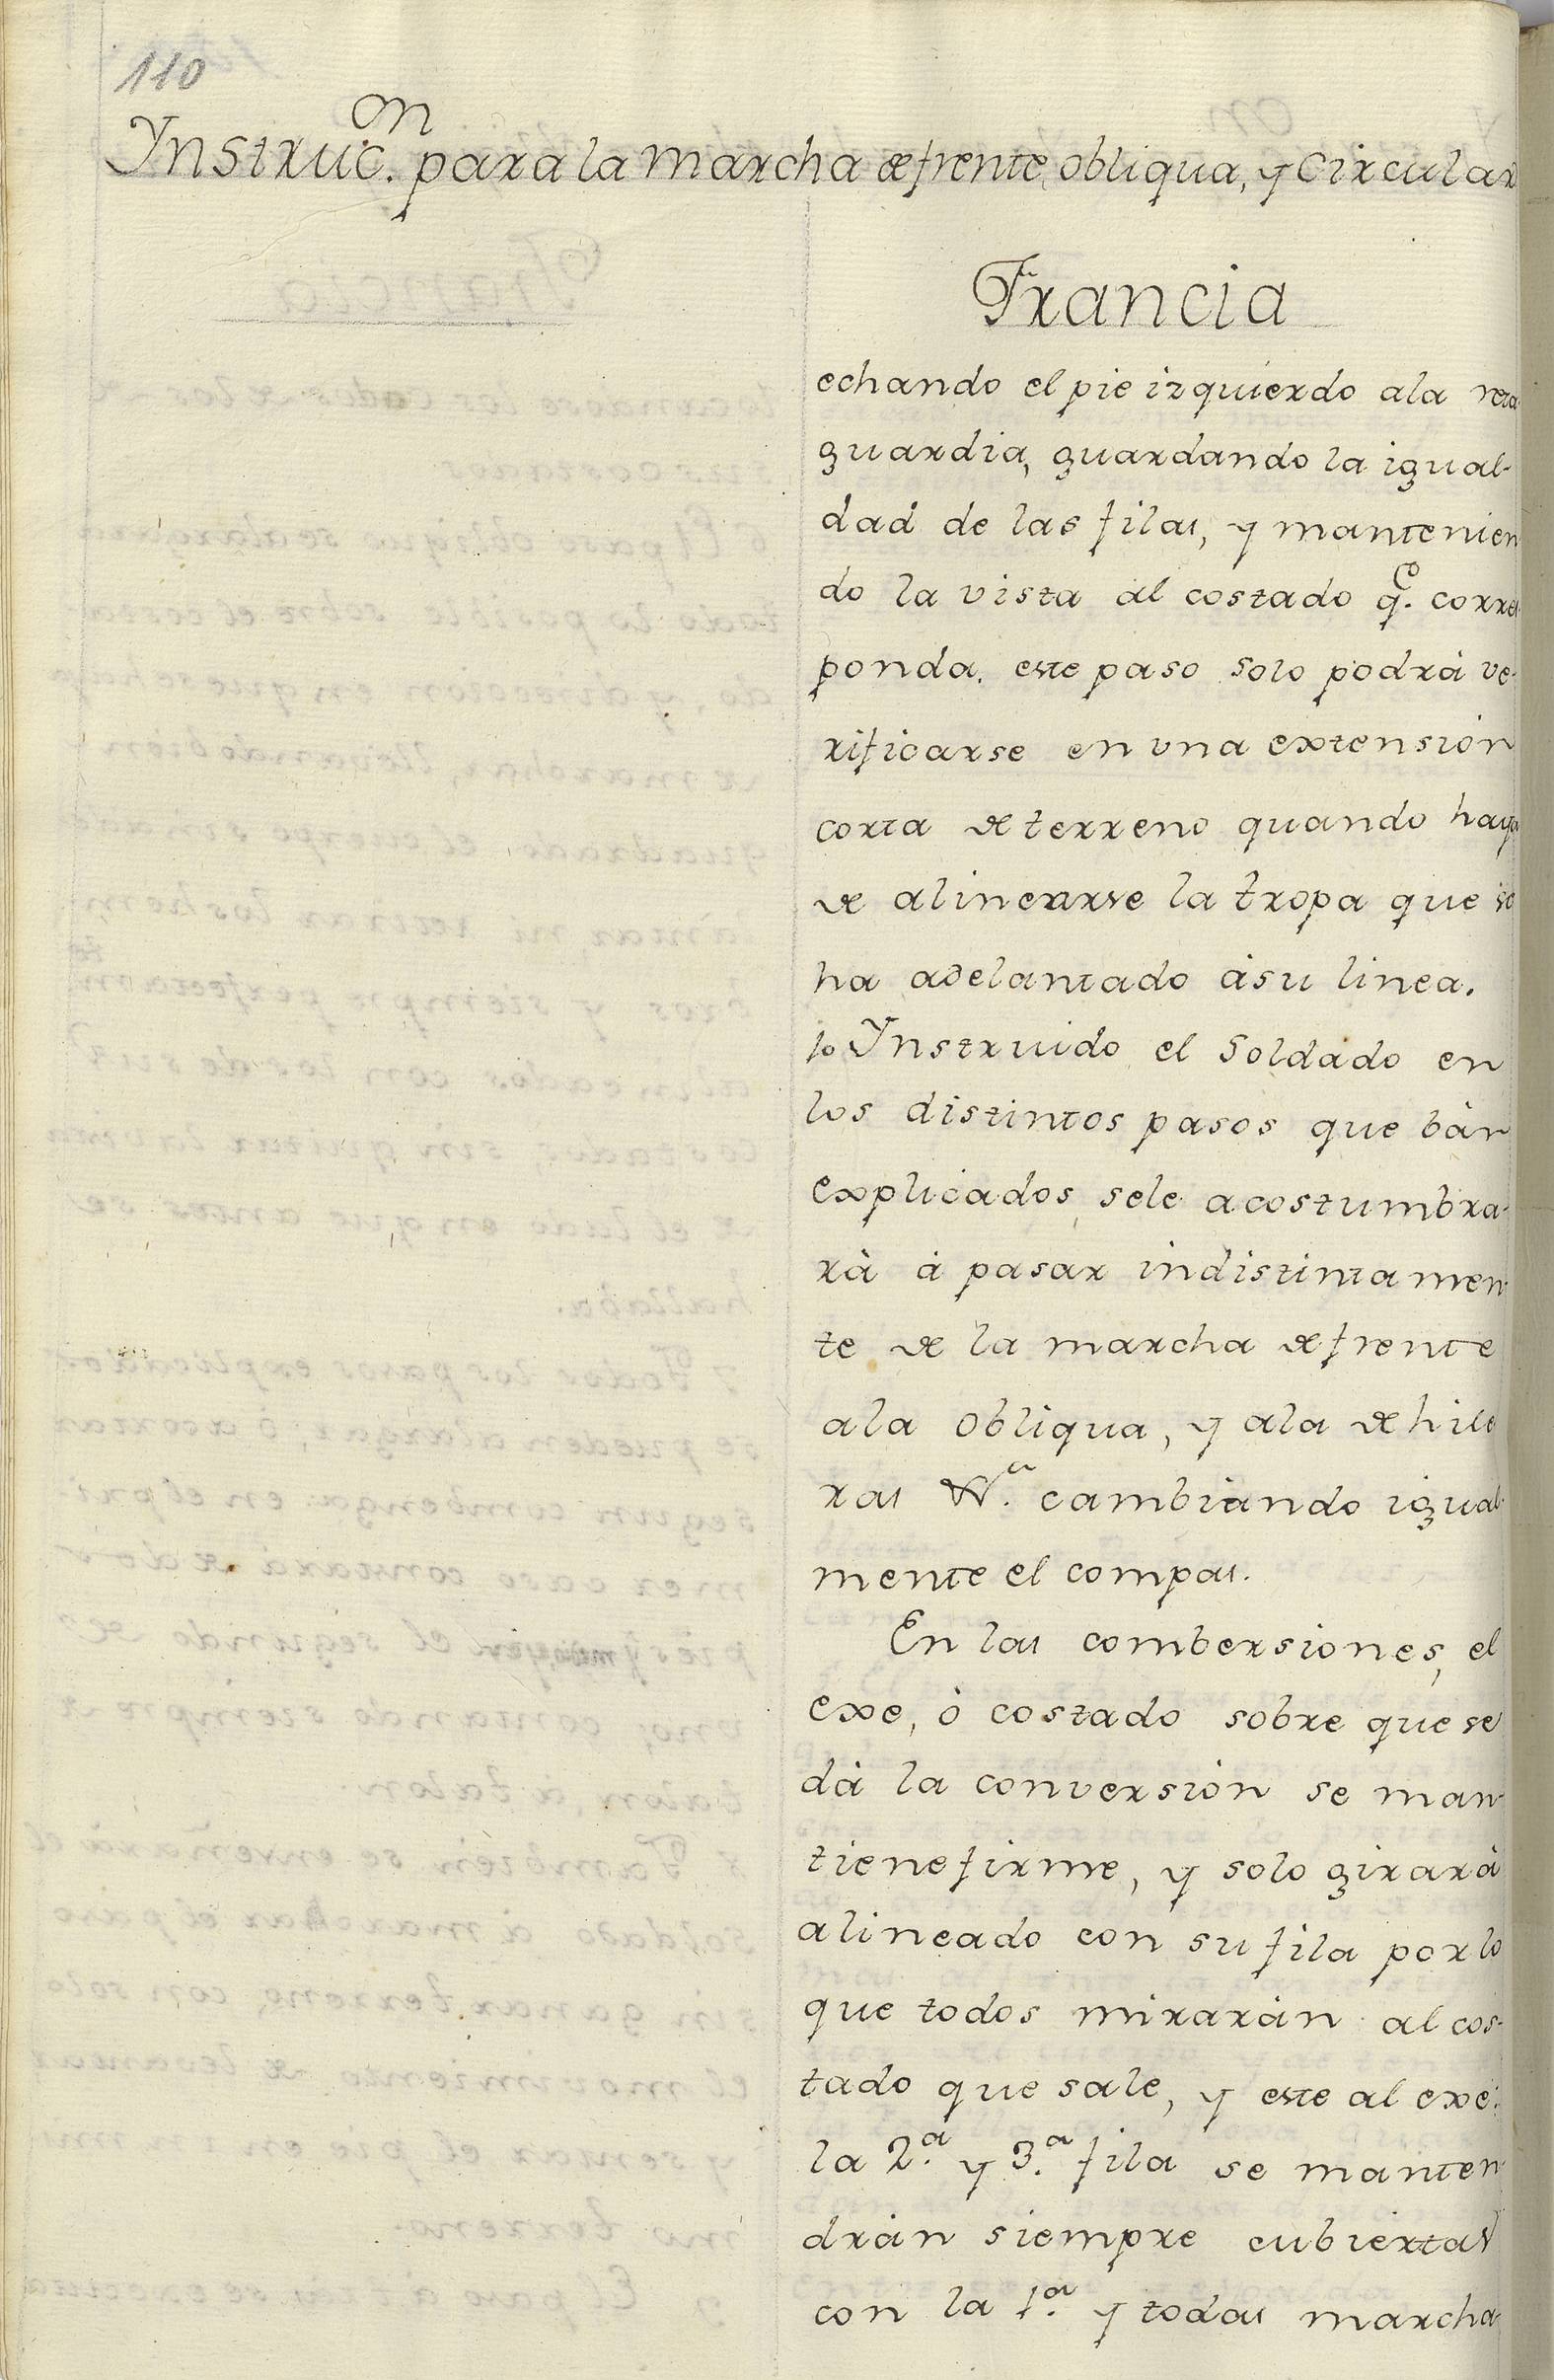 110
Ynstruc.on para la marcha de frente, obliqua, y circular
Francia
echando el pie izquierdo ala reta
guardia, guardando la igual-
dad de las filas, y mantenien
do la vista al costado q.e corres
ponda. este paso solo podrà ve-
rificarse en vna extensiòn
corta de terreno quando haya
de alinearse la tropa que se
ha adelantado àsu linea.
10 Ynstruido el Soldado en
los distintos pasos que bàn
explicados, sele acostumbra-
rà à pasar indistintamen-
te de la marcha de frente
ala obliqua, y ala de hile
ras Vª. cambiando igual-
mente el compas.
En las combersiones, el
exe, ò costado sobre que se
dà la conversiòn se man-
tiene firme, y solo girarà
alineado con su fila por lo
que todos miraràn al cos-
tado que sale, y este al exe:
la 2.a y 3.a fila se manten-
dràn siempre cubiertas
con la 1.a y todas marcha